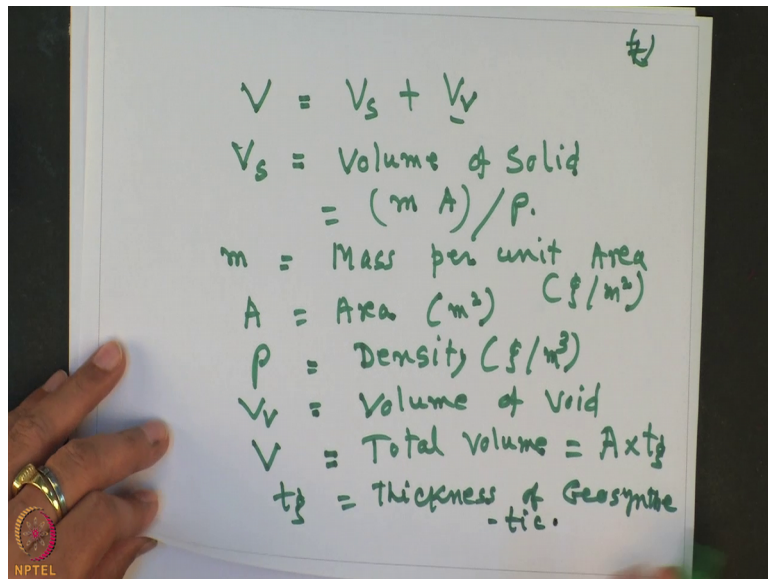 V = Vs + Vv
Vs = Volume of Solid
= (m A) / ρ.
m = Mass per unit Area
(g/m²)
A = Area (m²)
ρ = Density (g/m³)
Vv = Volume of Void
V = Total Volume = A x tg
tg = Thickness of Geosynthe
-tic.
NPTEL